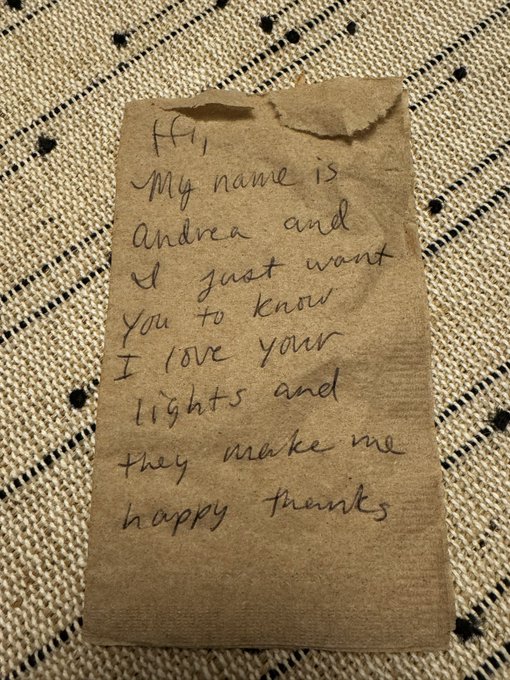 Hi,
My name is
Andrea and
I just want
you to know
I love your
lights and
they make me
happy thanks